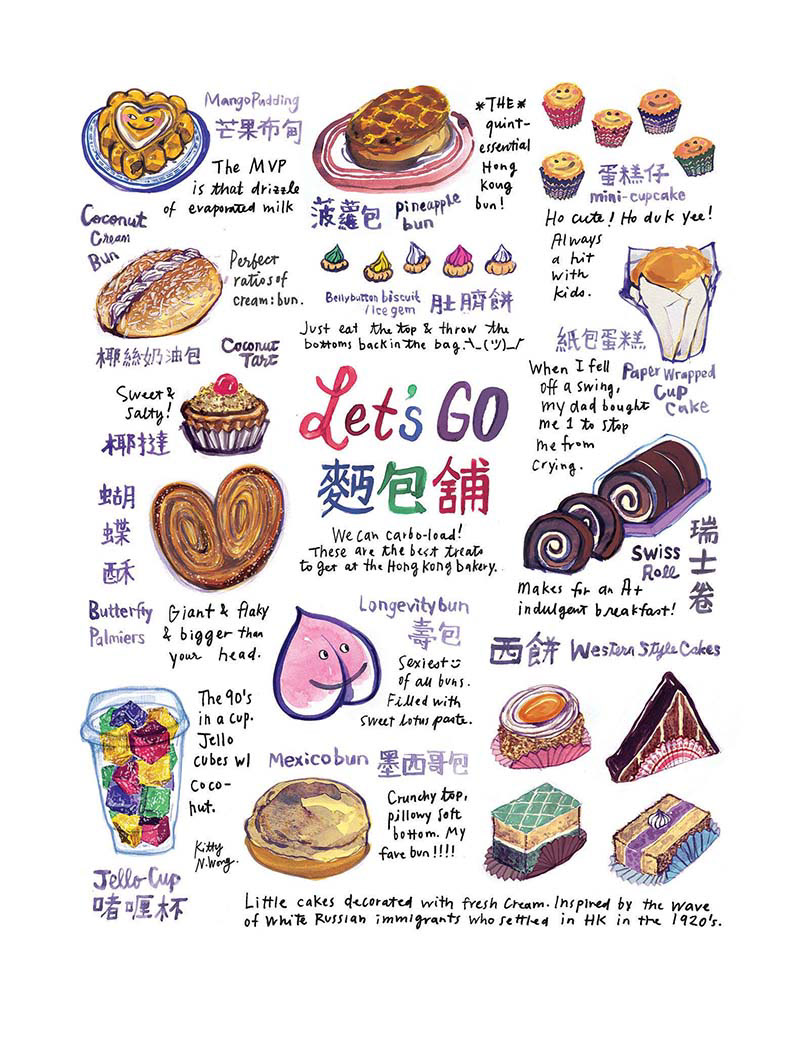 Mango Pudding
芒果布甸
The MVP
is that drizzle
of evaporated milk
*THE*
quint-
essential
Hong
Kong
bun!
菠蘿包 Pineapple
bun
蛋糕仔
mini-cupcake
Ho cute! Ho duk yee!
Always
a hit
with
kids.
Coconut
Cream
Bun
Perfect
ratios of
cream:bun.
椰絲奶油包
Bellybutton biscuit
/Ice gem
肚臍餅
Just eat the top & throw the
bottoms back in the bag. ¯\_(ツ)_/¯
紙包蛋糕
Paper Wrapped
Cup
Cake
When I fell
off a swing,
my dad bought
me 1 to stop
me from
crying.
Coconut
Tart
Sweet &
Salty!
椰撻
Let's GO
麵包舖
We can carbo-load!
These are the best treats
to get at the Hong Kong bakery.
蝴
蝶
酥
Butterfly
Palmiers
Giant & flaky
& bigger than
your head.
Swiss
Roll
瑞
士
卷
Makes for an A+
indulgent breakfast!
Longevity bun
壽包
Sexiest
of all buns.
Filled with
sweet lotus paste.
西餅 Western Style Cakes
The 90's
in a cup.
Jello
cubes w/
Coco-
nut.
Jello Cup
啫喱杯
Mexico bun 墨西哥包
Crunchy top,
pillowy soft
bottom. My
fave bun!!!!
Kitty
N. Wong.
Little cakes decorated with fresh cream. Inspired by the wave
of White Russian immigrants who settled in HK in the 1920's.